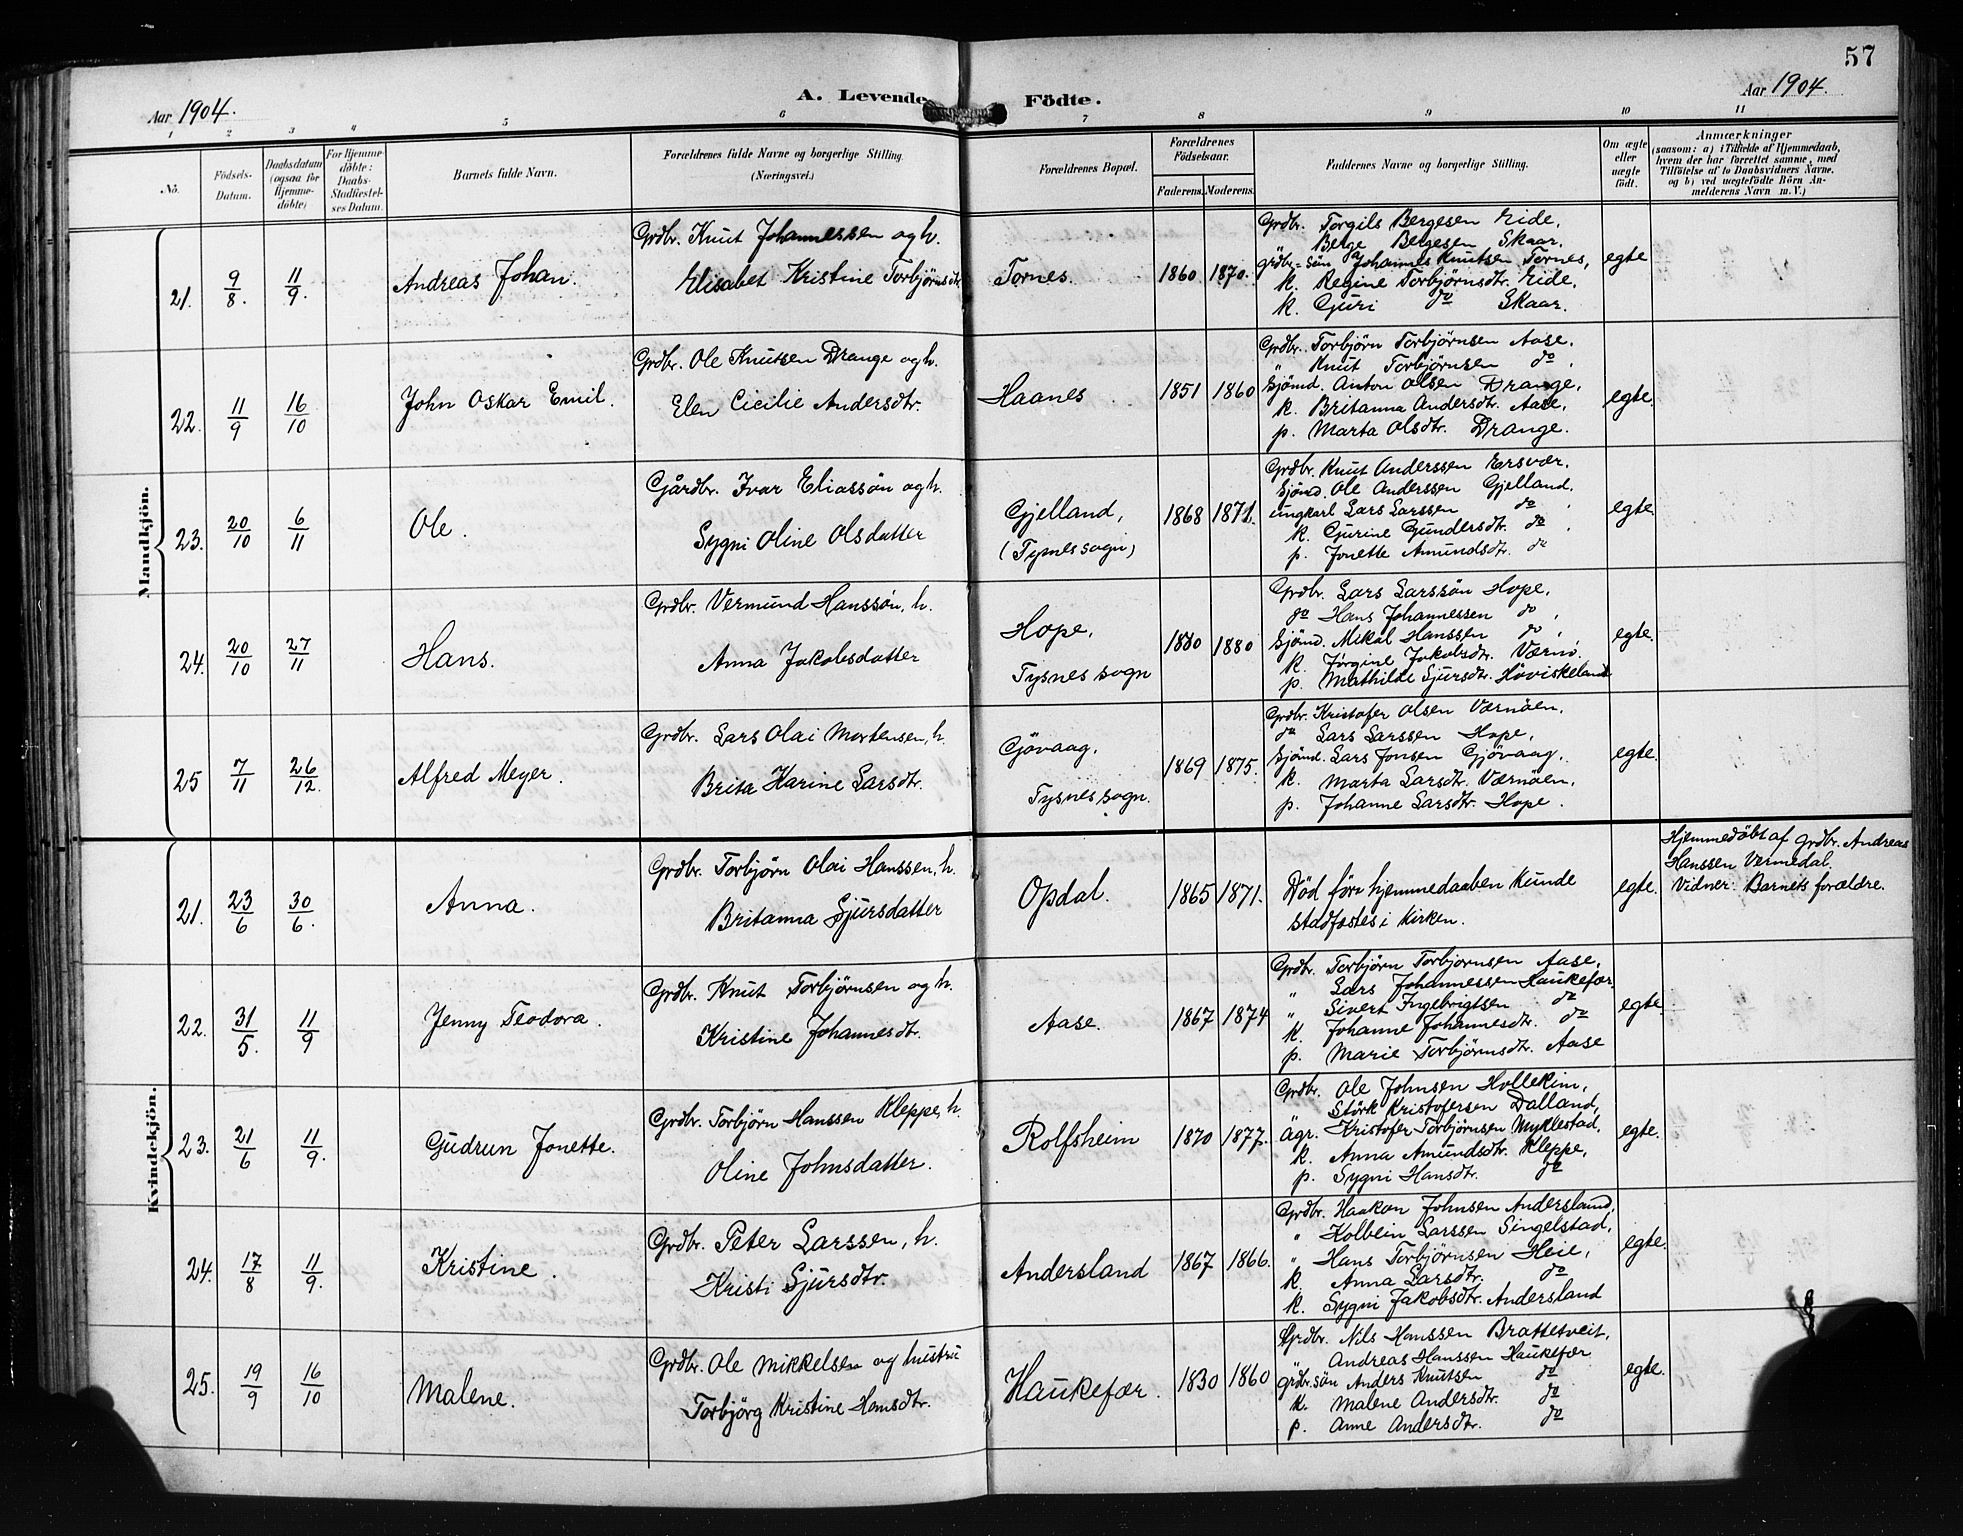 57
Aar 1904.
A. Levende Födte.
Aar 1904.
1 2 3 4 5 6 7 8 9 10 11
No.
Födsels-Datum.
Daabsdatum (ogsaa for Hjemme-döbte)
For Hjemme-döbte: Daabs-Stadfæstel-ses Datum.
Barnets fulde Navn.
Forældrenes fulde Navne og borgerlige Stilling. (Næringsvei.)
Forældrenes Bopæl.
Forældrenes Födselsaar.
Faderens. Moderens.
Faddernes Navne og borgerlige Stilling.
Om ægte eller uægte födt.
Anmærkninger
(saasom: a) i Tilfælde af Hjemmedaab, hvem der har forrettet samme, med Tilföielse af to Daabsvidners Navne. og b) ved uægtefödte Börn An-melderens Navn m. V.)
Mandkjön.
21. 9/8. 11/9. Andreas Johan.
Grdbr. Knut Johannessen og h.
Elisabet Kristine Torbjörnsdtr
Tornes. 1860. 1870.
Grdbr. Torgils Bergesen Eide,
Berge Bergesen Skaar.
grdbr.=sön Johannes Knutsen Tornes,
k. Regine Torbjörnsdtr. Eide,
k. Guri do Skaar.
egte
22. 11/9 16/10 John Oskar Emil.
Grdbr. Ole Knutsen Drange og h.
Elen Cicilie Andersdtr.
Haanes 1851 1860
Grdbr. Torbjörn Torbjörnsen Aase.
" Knut Torbjörnsen do.
Sjömd. Anton Olsen Drange,
k. Britanna Andersdtr. Aase,
p. Marta Olsdtr. Drange.
egte.
23. 20/10 6/11 Ole.
Gårdbr. Ivar Eliassön og h.
Sygni Oline Olsdatter
Gjelland,
(Tysnes sogn)
1868 1871.
Grdbr. Knut Anderssen Ersvær.
Sjömd. Ole Anderssen Gjelland.
ungkarl Lars Larssen do.
k. Gurine Gundersdtr. do
p. Jonette Amundsdtr. do
egte.
24. 20/10 27/11 Hans.
Grdbr. Vermund Hanssön, h.
Anna Jakobsdatter
Hope,
Tysnes sogn
1880 1880
Grdbr. Lars Larssön Hope,
do Hans Johannessen do,
Sjömd. Mikal Hanssen do,
k. Jörgine Jakobsdtr. Værnö.
p. Mathilde Sjursdtr. Höviskeland
egte.
25 7/11 26/12. Alfred Meyer.
Grdbr. Lars Olai Mortensen, h.
Brita Karine Larsdtr.
Gövaag,
Tysnes sogn.
1869 1875.
Grdbr. Kristofer Olsen Værnöen,
do Lars Larssen Hope,
Sjömd. Lars Jonsen Gjövaag,
k. Marta Larsdtr. Værnöen,
p. Johanne Larsdtr. Hope.
egte.
Kvindekjön.
21. 23/6 30/6. Anna.
Grdbr. Torbjörn Olai Hanssen, h.
Britanna Sjursdatter
Opdal. 1865 1871.
Död före hjemmedaaben kunde
stadfæstes i Kirken.
egte.
Hjemmedöbt af Grdbr. Andreas
Hanssen Vermedal.
Vidner: Barnets forældre.
22. 31/5. 11/9 Jenny Teodora.
Grdbr. Knut Torbjörnsen og h.
Kristine Johannesdtr.
Aase. 1867 1874
Grdbr. Torbjörn Torbjornsen Aase,
" Lars Johannessen Haukefær
" Sivert Ingebrigtsen do
k. Johanne Johannesdtr. do
p. Marie Torbjörnsdtr. Aase
egte
23. 21/6 11/9. Gudrun Jonette.
Grdbr. Torbjörn Hanssen Kleppe, h.
Oline Johnsdatter.
Rolfsheim 1870 1877.
Grdbr. Ole Johnsen Hollekim,
Störk Kristofersen Dalland,
Agr. Kristofer Torbjörnsen Myklestad.
k. Anna Amundsdtr. Kleppe,
p. Sygni Hansdtr. do
egte.
24. 17/8 11/9. Kristine.
Grdbr. Peter Larssen, h.
Kristi Sjursdtr.
Andersland 1867 1866.
Grdbr. Haakon Johnsen Andersland,
" Kolbein Larssen Singelstad,
" Hans Torbjörnsen Heie,
k. Anna Larsdtr. do
k. Sygni Jakobsdtr. Andersland
egte.
25. 19/9 16/10 Malene.
Grdbr. Ole Mikkelsen og hustru
Torbjörg Kristine Hansdtr.
Haukefær. 1830 1860
Grdbr. Nils Hanssen Brattetveit,
" Andreas Hanssen Haukefær
grdbr.sön Anders Knutsen do
k. Malene Andersdtr. do
p. Anne Andersdtr. do
egte.